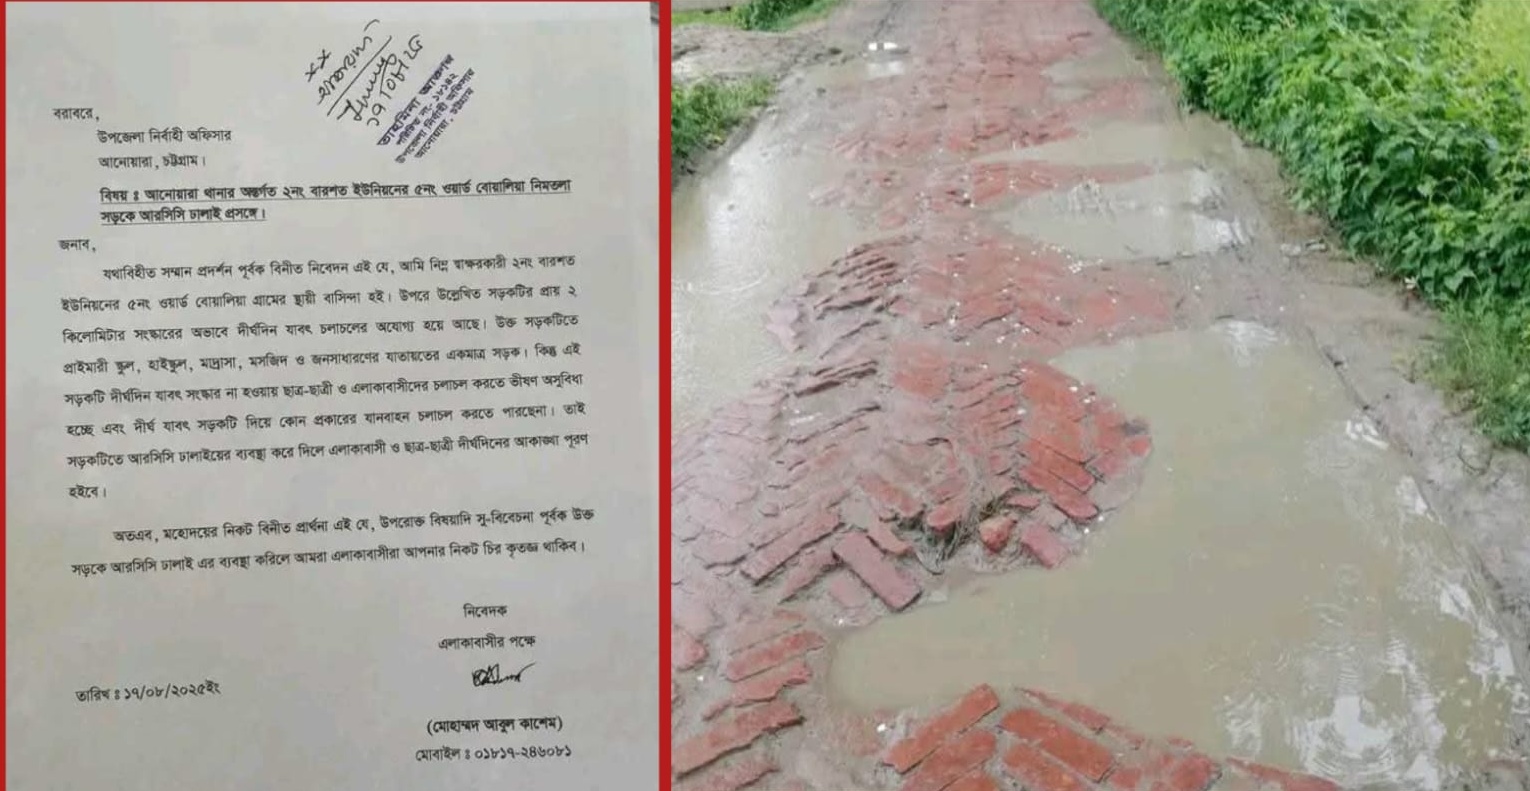 তাহমিনা আক্তার
পরিচিতি নং- ১৮১৪২
উপজেলা নির্বাহী অফিসার
আনোয়ারা, চট্টগ্রাম
বরাবরে,
উপজেলা নির্বাহী অফিসার
আনোয়ারা, চট্টগ্রাম।
বিষয় ঃ আনোয়ারা থানার অন্তর্গত ২নং বারশত ইউনিয়নের ৫নং ওয়ার্ড বোয়ালিয়া নিমতলা
সড়কে আরসিসি ঢালাই প্রসঙ্গে।
জনাব,
যথাবিহীত সম্মান প্রদর্শন পূর্বক বিনীত নিবেদন এই যে, আমি নিম্ন স্বাক্ষরকারী ২নং বারশত
ইউনিয়নের ৫নং ওয়ার্ড বোয়ালিয়া গ্রামের স্থায়ী বাসিন্দা হই। উপরে উল্লেখিত সড়কটির প্রায় ২
কিলোমিটার সংস্কারের অভাবে দীর্ঘদিন যাবৎ চলাচলের অযোগ্য হয়ে আছে। উক্ত সড়কটিতে
প্রাইমারী স্কুল, হাইস্কুল, মাদ্রাসা, মসজিদ ও জনসাধারণের যাতায়তের একমাত্র সড়ক। কিন্তু এই
সড়কটি দীর্ঘদিন যাবৎ সংস্কার না হওয়ায় ছাত্র-ছাত্রী ও এলাকাবাসীদের চলাচল করতে ভীষণ অসুবিধা
হচ্ছে এবং দীর্ঘ যাবৎ সড়কটি দিয়ে কোন প্রকারের যানবাহন চলাচল করতে পারছেনা। তাই
সড়কটিতে আরসিসি ঢালাইয়ের ব্যবস্থা করে দিলে এলাকাবাসী ও ছাত্র-ছাত্রী দীর্ঘদিনের আকাঙ্খা পূরণ
হইবে।
অতএব, মহোদয়ের নিকট বিনীত প্রার্থনা এই যে, উপরোক্ত বিষয়াদি সু-বিবেচনা পূর্বক উক্ত
সড়কে আরসিসি ঢালাই এর ব্যবস্থা করিলে আমরা এলাকাবাসীরা আপনার নিকট চির কৃতজ্ঞ থাকিব।
নিবেদক
এলাকাবাসীর পক্ষে
তারিখ ঃ ১৭/০৮/২০২৫ইং
(মোহাম্মদ আবুল কাশেম)
মোবাইল ঃ ০১৮১৭-২৪৬০৮১